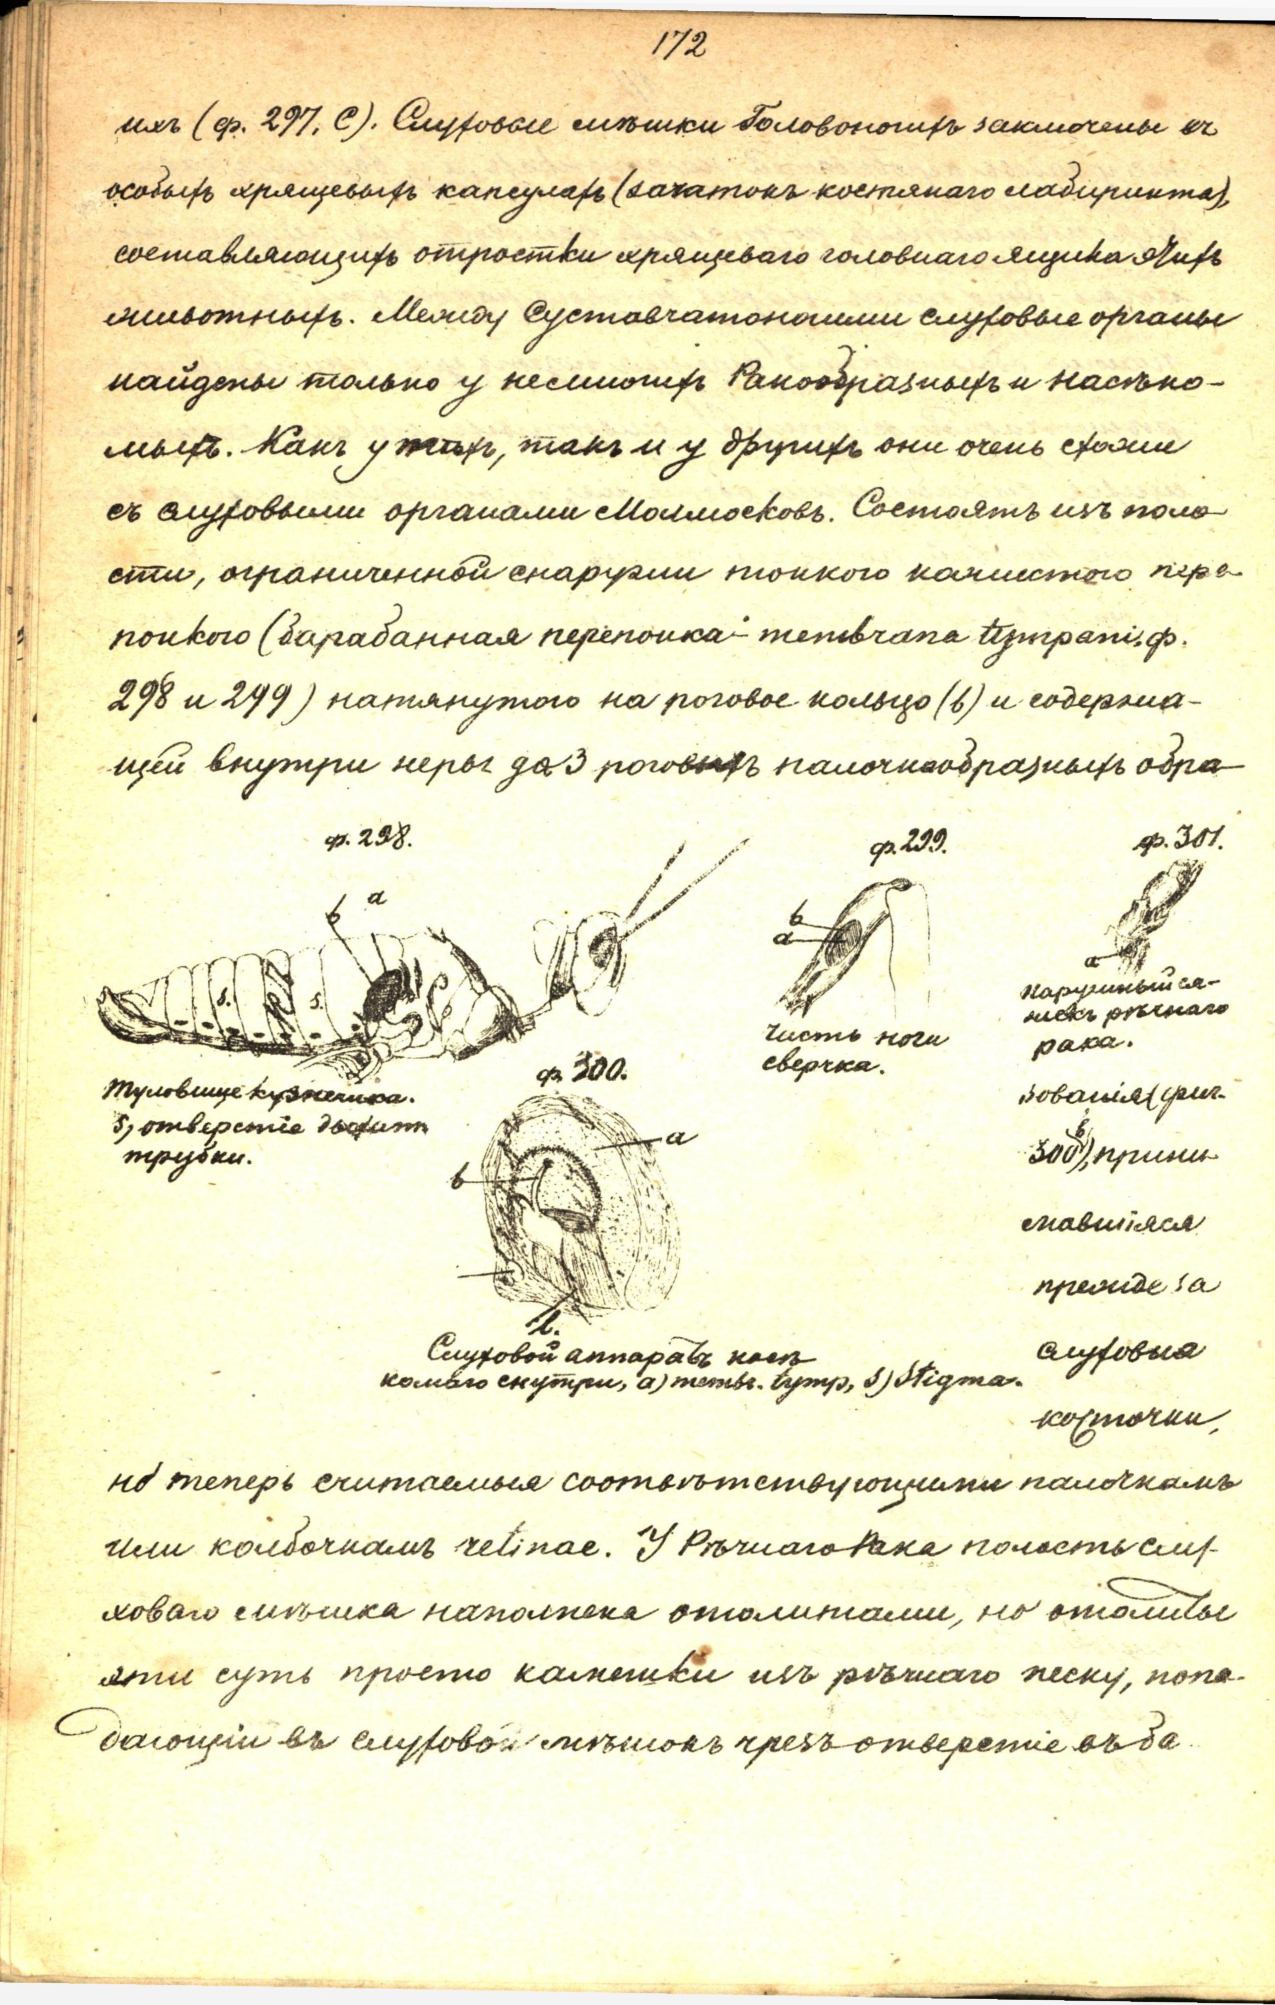 172
ихъ (ф. 297, С). Слуховые мѣшки Головоногихъ заключены въ
особыхъ хрящевыхъ капсулахъ (зачатокъ костянаго лабиринта),
составляющихъ отростки хрящеваго головнаго ящика этихъ
животныхъ. Между Суставчатоногими слуховые органы
найдены только у немногихъ Ракообразныхъ и Насѣко-
мыхъ. Какъ у тѣхъ, такъ и у другихъ они очень схожи
съ слуховыми органами Моллюсковъ. Состоятъ изъ поло-
сти, ограниченной снаружи тонкого кожистого пере-
понкого (барабанная перепонка - membrana tympani, ф.
298 и 299) натянутого на роговое кольцо (b) и содержа-
щей внутри нервъ да 3 роговыхъ палочкообразныхъ обра-
ф. 298.
ф. 299.
ф. 301.
b a
b
a
a
s.
s.
Туловище кузнечика.
s, отверстіе дыхат.
трубки.
Часть ноги
сверчка.
Наружный ся-
жекъ рѣчнаго
рака.
ф. 300.
a
b
l.
Слуховой аппаратъ насѣ
комаго снутри, a) membr. tymp, s) stigma.
зованія (фиг.
300, b), прини-
мавшіяся
прежде за
слуховыя
косточки,
но теперь считаемыя соотвѣтствующими палочкамъ
или колбочкамъ retinae. У Рѣчнаго Рака полость слу-
ховаго мѣшка наполнена отолитами, но отолиты
эти суть просто камешки изъ рѣчнаго песку, попа-
дающіи въ слуховой мѣшокъ чрезъ отверстіе въ ба